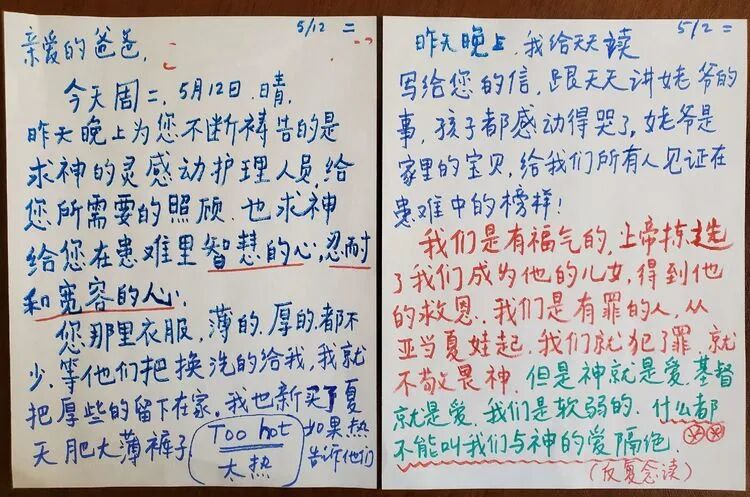 5/12 二
亲爱的爸爸,
今天周二,5月12日,晴,
昨天晚上为您不断祷告的是
求神的灵感动护理人员,给
您所需要的照顾.也求神
给您在患难里智慧的心,忍耐
和宽容的心;
您那里衣服,薄的.厚的.都不
少.等他们把换洗的给我,我就
把厚些的留下在家.我也新买了夏
天肥大薄裤子. Too hot 太热 如果热告诉他们
5/2 二
昨天晚上,我给天天读
写给您的信,跟天天讲姥爷的
事,孩子都感动得哭了.姥爷是
家里的宝贝,给我们所有人见证在
患难中的榜样!
我们是有福气的,上帝拣选
了我们成为他的儿女,得到他
的救恩.我们是有罪的人,从
亚当夏娃起,我们就犯了罪,就
不敬畏神.但是神就是爱.基督
就是爱.我们是软弱的.什么都
不能叫我们与神的爱隔绝.
(反复念读)